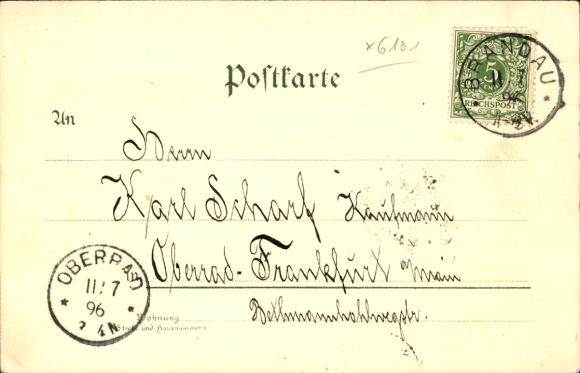 x6101
Postkarte
BRANDAU
11 7
96
5
REICHSPOST
An
Herrn
Karl Scharf Kaufmann
Oberrad-Frankfurt a/Main
OBERRAD
11/7
96
N.
Wohnung
(Straße und Hausnummer)